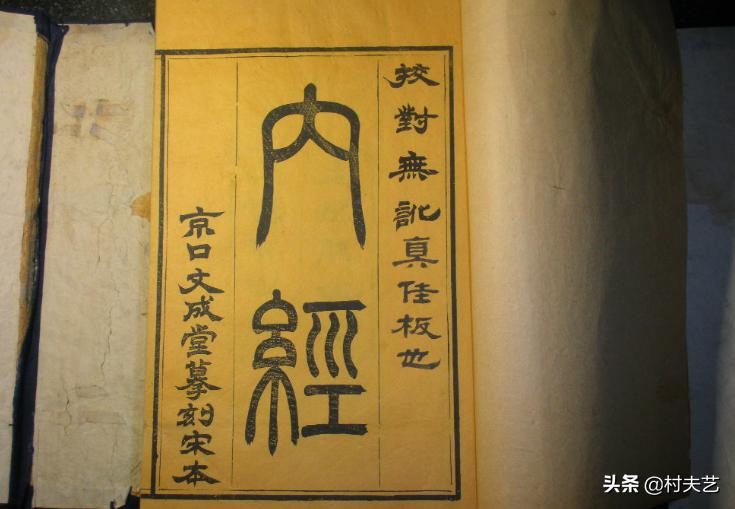 挍對無訛真佳板也
內經
京口文成堂摹刻宋本
头条 @村夫艺